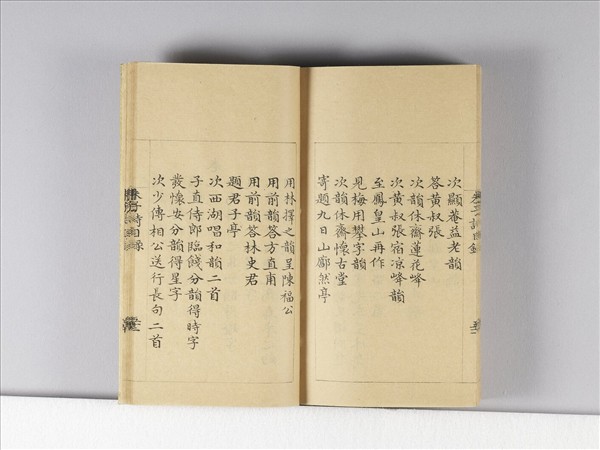 次顯菴益老韻
答黃叔張
次韻休齋蓮花峰
次黃叔張宿凉峰韻
至鳳皇山再作
見梅用攀字韻
次韻休齋懷古堂
寄題九日山廓然亭
用林擇之韻呈陳福公
用前韻答方直甫
用前韻答林史君
題君子亭
次西湖唱和韻二首
子直侍郎臨餞分韻得時字
發懷安分韻得星字
次少傅相公送行長句二首